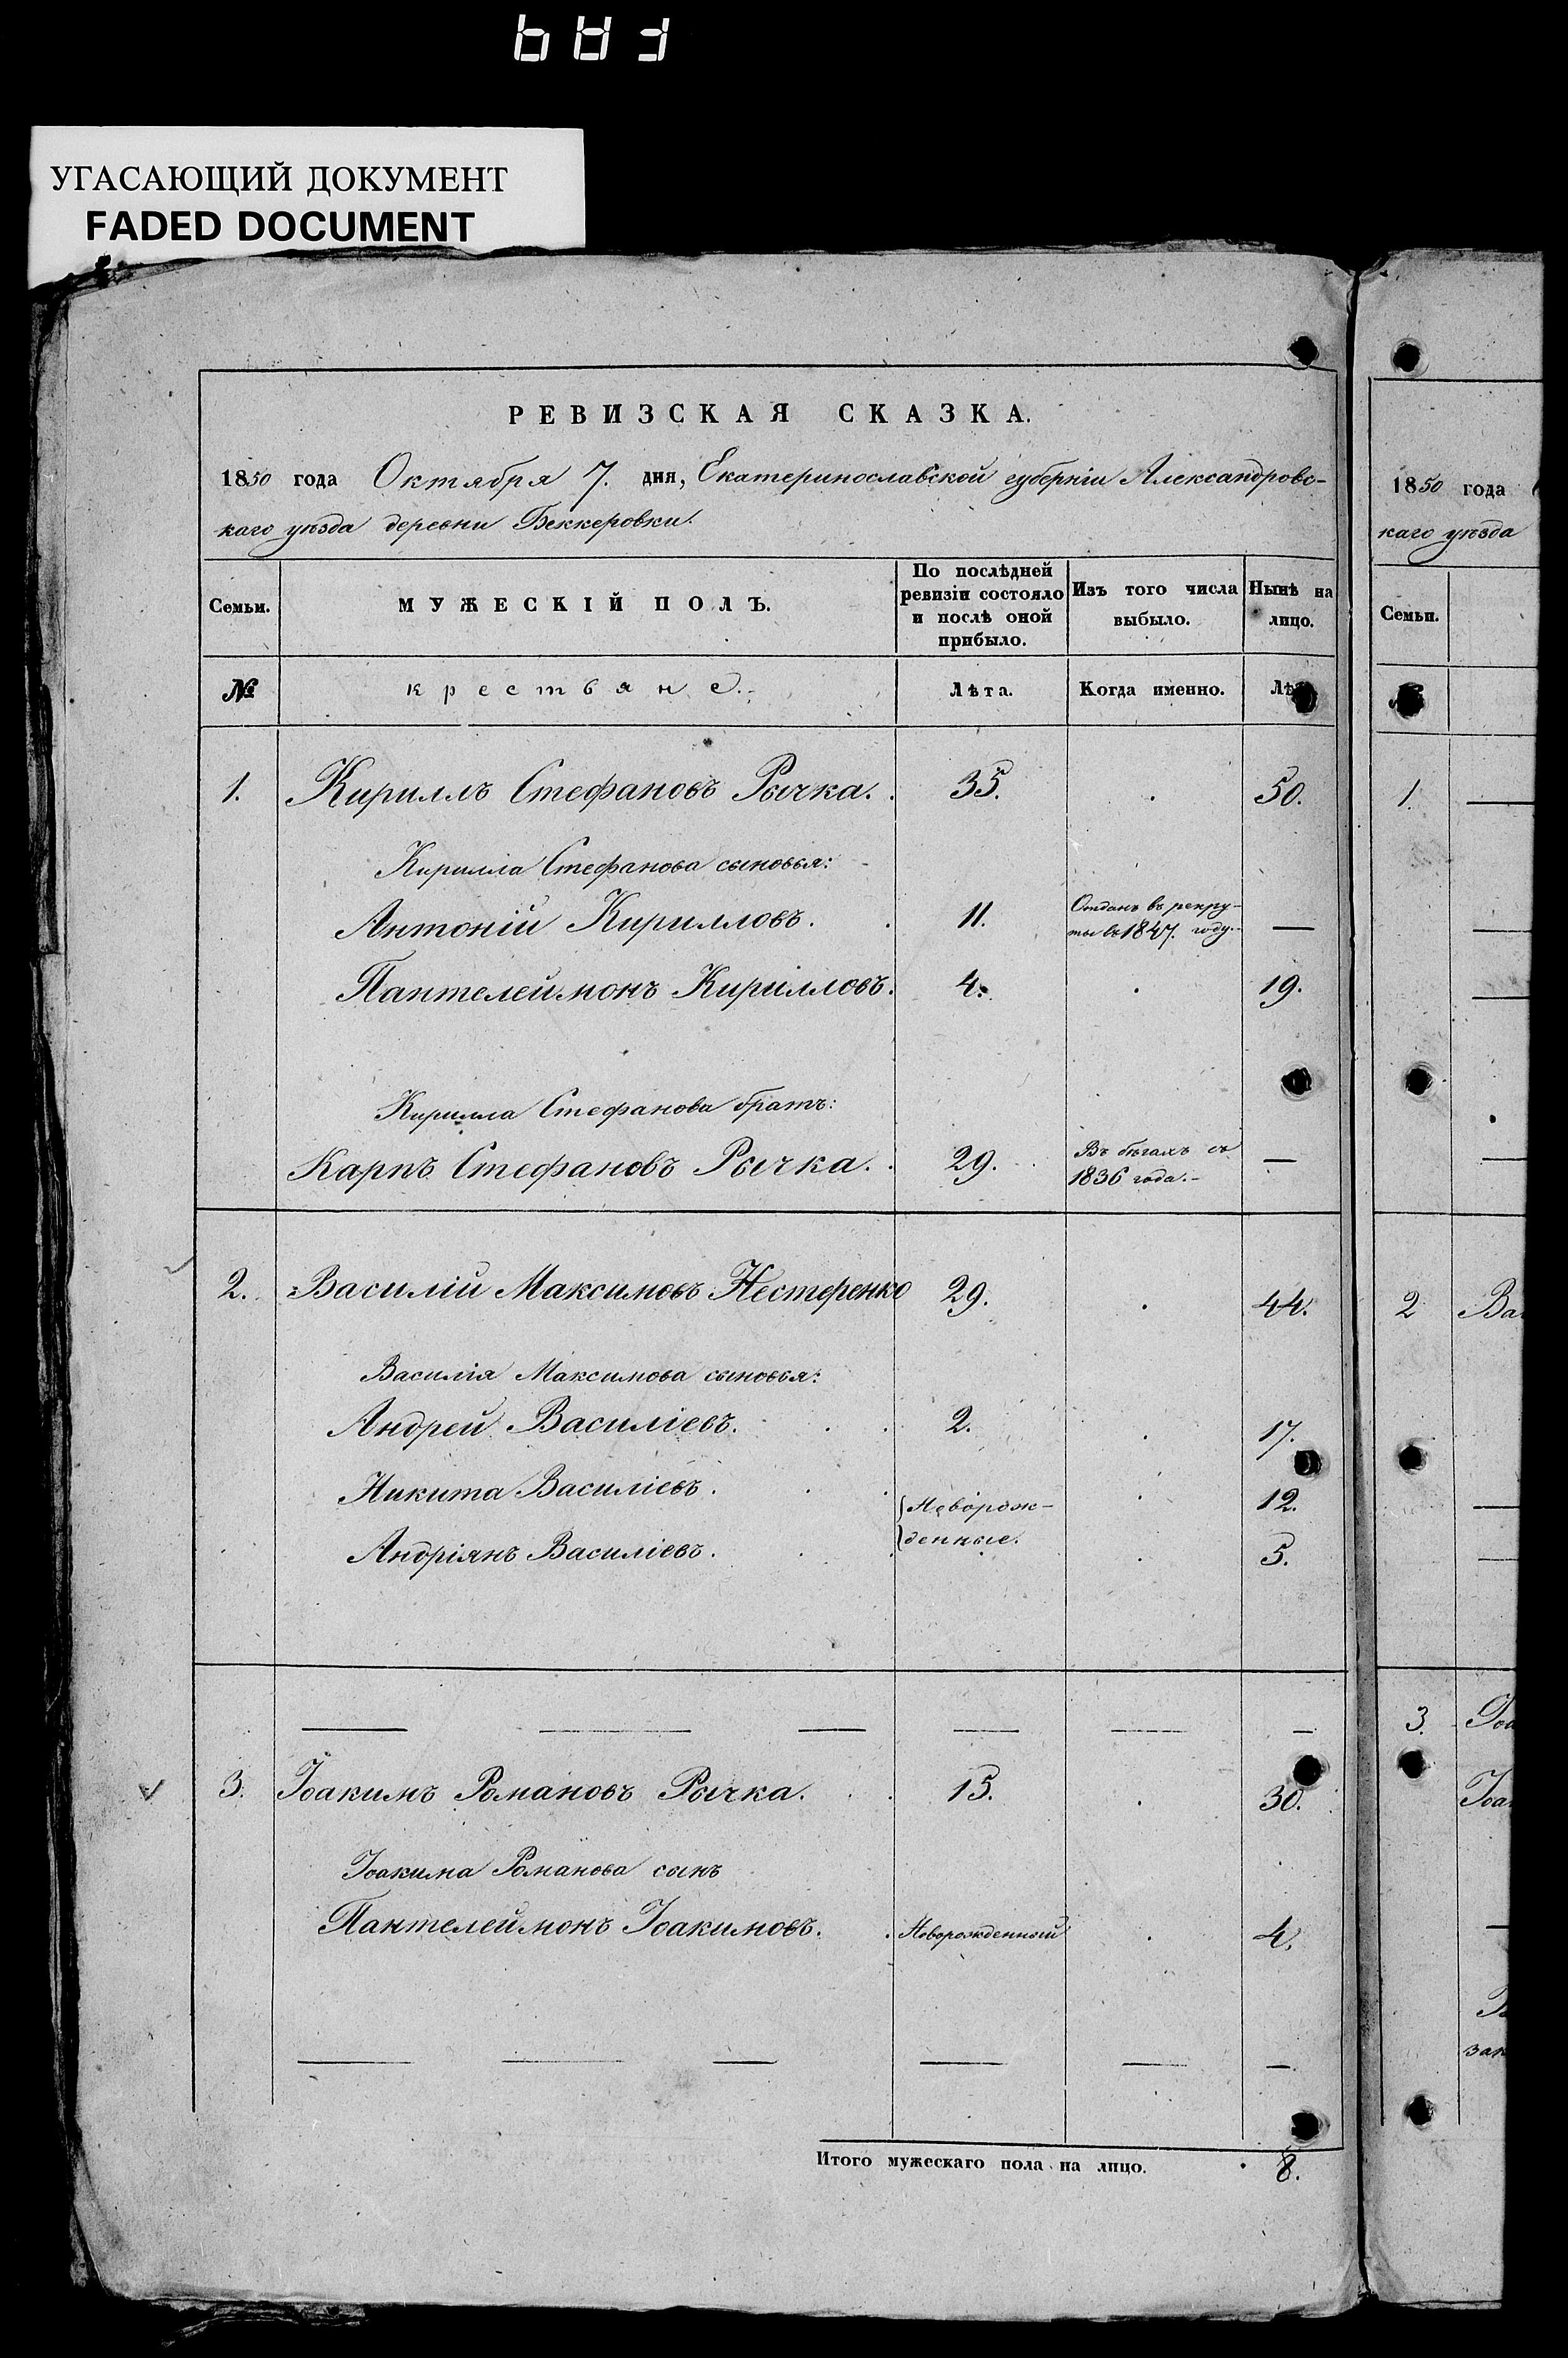 УГАСАЮЩИЙ ДОКУМЕНТ
FADED DOCUMENT
РЕВИЗСКАЯ СКАЗКА.
1850 года Октября 7. дня, Екатеринославской губерніи Александровс-
каго уѣзда деревни Беккеровки.
Семьи.
МУЖЕСКІЙ ПОЛЪ.
По послѣдней
ревизіи состояло
и послѣ оной
прибыло.
Изъ того числа
выбыло.
Нынѣ на
лицо.
№
крестьяне.
Лѣта.
Когда именно.
1. Кириллъ Стефановъ Рычка. 35. 50.
Кирилла Стефанова сыновья:
Антоній Кирилловъ. 11. Отданъ въ рекру-
ты въ 1847. году. —
Пантелеймонъ Кирилловъ. 4. 19.
Кирилла Стефанова братъ:
Карпъ Стефановъ Рычка. 29. Въ бѣгахъ съ
1836 года. —
2. Василій Максимовъ Нестеренко 29. 44.
Василія Максимова сыновья:
Андрей Василіевъ. 2. 17.
Никита Василіевъ. Новорож- 12.
Андріянъ Василіевъ. денные. 5.
3. Іоакимъ Романовъ Рычка. 15. 30.
Іоакима Романова сынъ
Пантелеймонъ Іоакимовъ. Новорожденный 4.
Итого мужескаго пола на лицо. 8.
1850 года
каго уѣзда
Семьи.
1.
2
3.